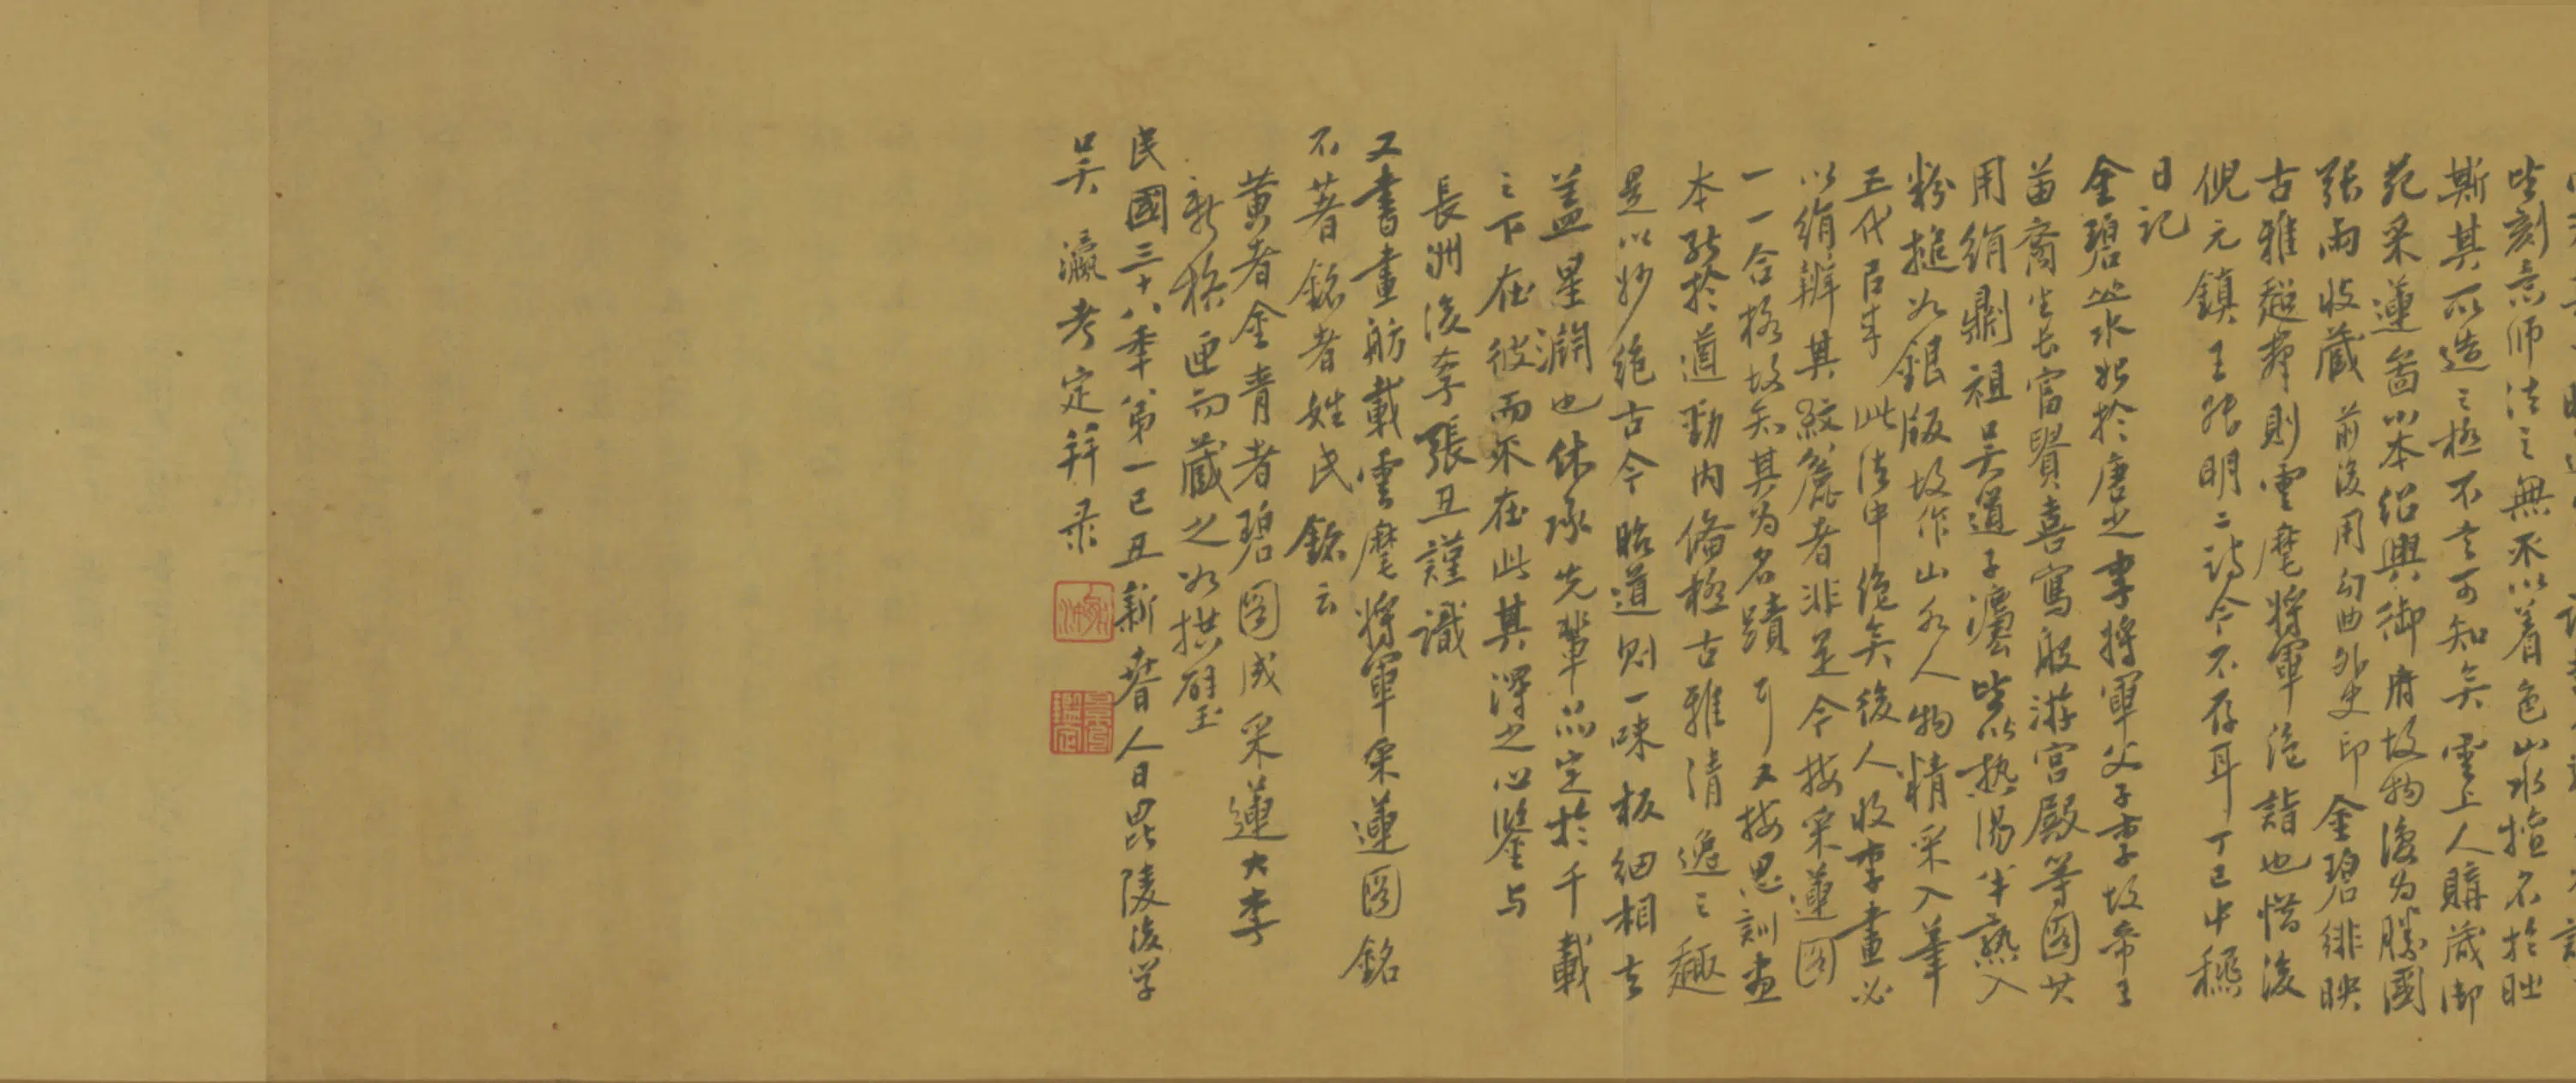 皆刻意師法之無不以着色山水擅名於時
斯其所造之極不言可知矣雲上人購藏御
苑采蓮圖小本紹興御府故物後为勝國
張雨收藏前後用勾曲外史印金碧緋映
古雅超群則雲麾將軍絕詣也惜後
倪元鎮王張明二詩今不存耳丁巳中穐
日記
金碧山水始於唐之李將軍父子李故帝王
苗裔生长富貴喜寫殿游宮殿等圖其
用絹則祖吳道子濃墨皆以熱湯半熟入
粉搥如銀版故作山水人物精采入筆
五代后来此法中绝矣後人收李畫必
以絹辨其紋麄者非是今按采蓮圖
一一合格故知其为名蹟可又按思訓畫
本殆於遒勁內備極古雅清逸之趣
是以妙绝古今昭道則一味板细相去
盖星渊也休承先輩品定於千載
之下在彼而不在此其深之心鑒与
長洲後李張丑謹識
又書畫舫載雲麾將軍采蓮圖銘
不著銘者姓氏銘云
黃者金青者碧圖成采蓮大李
新移匣而藏之如拱璧玉
民國三十八年第一己丑新春人日毘陵後学
吴瀛考定并录